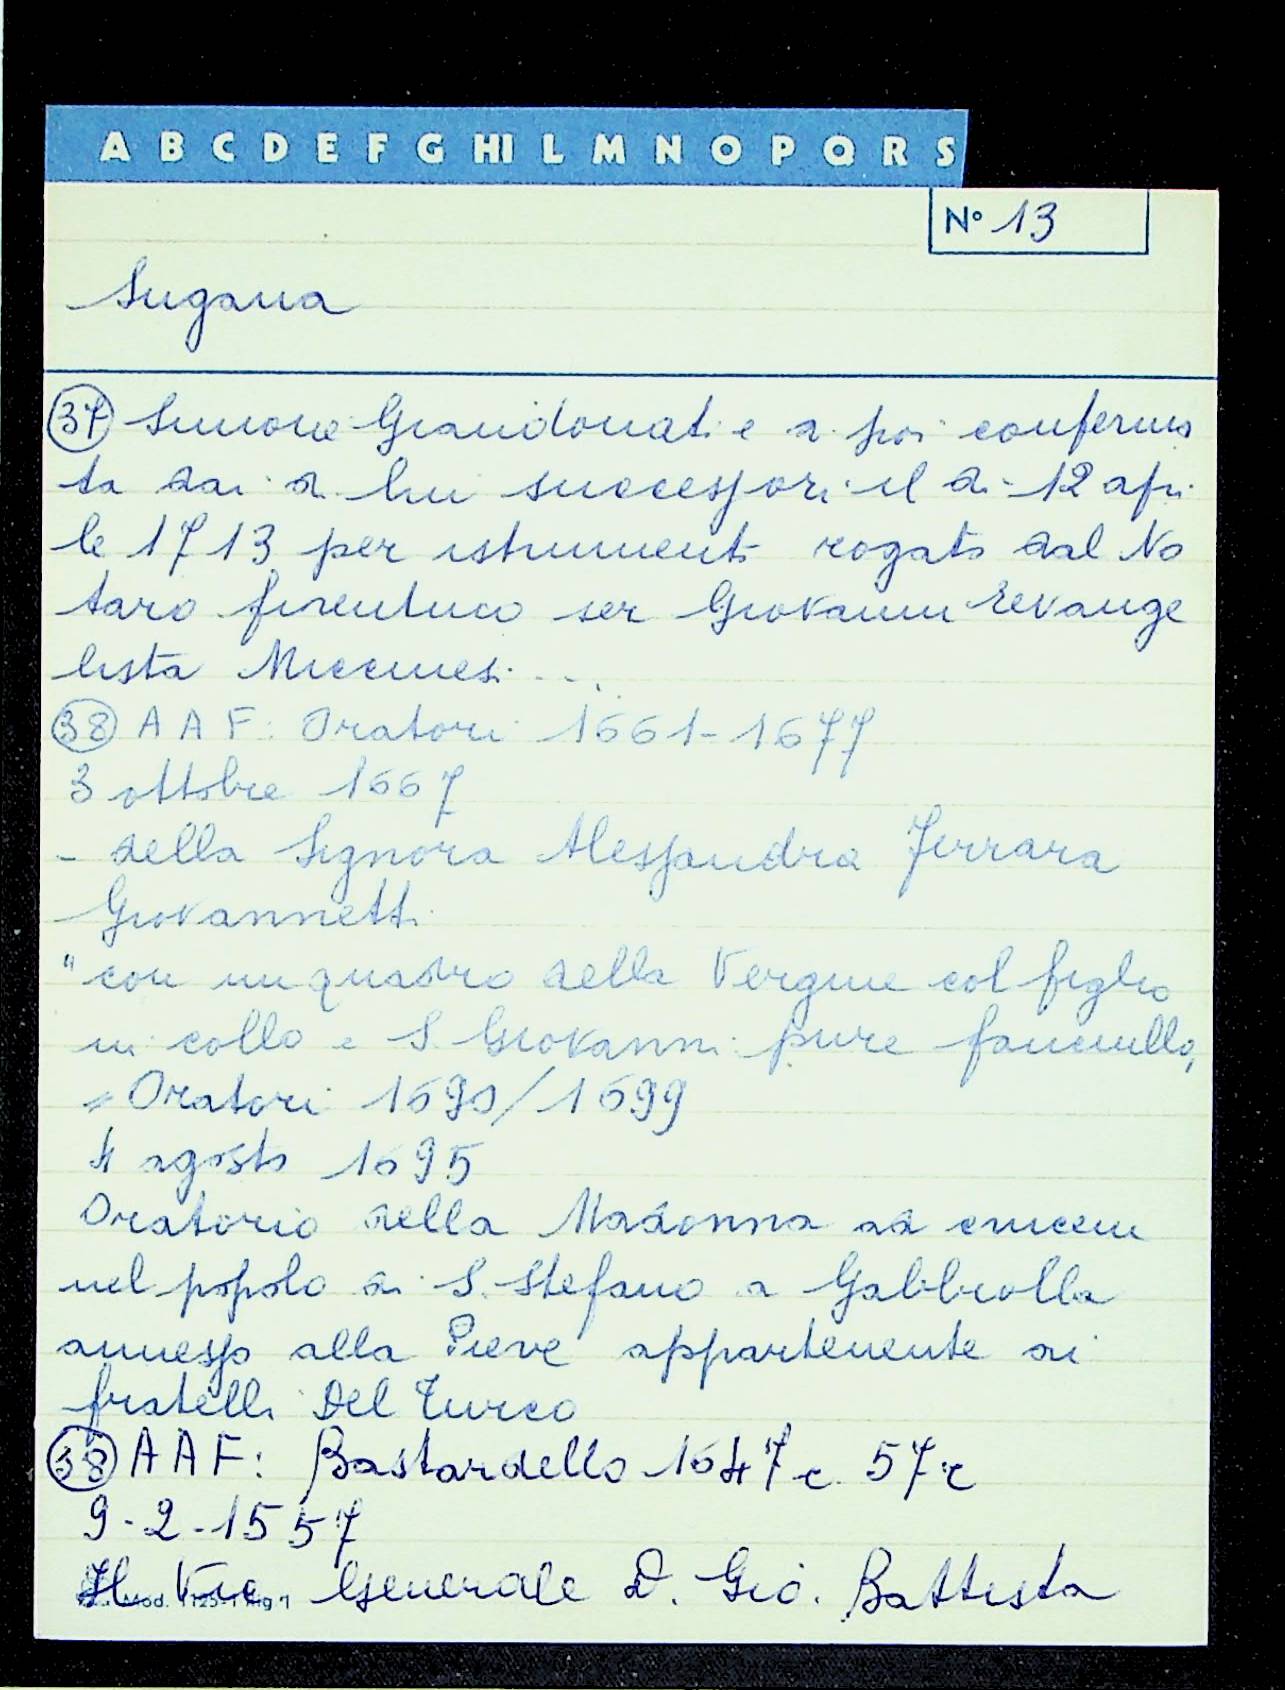 A B C D E F G HI L M N O P Q R S
N° 13
Sugana
37 Simone Grandonati e a poi conferma
ta dai di lui successori il dì 12 apri
le 1713 per istrumento rogato dal No
taro fiorentino ser Giovanni Evange
lista Miccinesi...
38 A A F: Oratori 1661-1677
3 ottobre 1667
- della Signora Alessandra Ferrara
Giovannetti
"con un quadro della Vergine col figlio
in collo e S. Giovanni pure fanciullo,
= Oratori 1690/1699
4 agosto 1695
Oratorio della Madonna ad
nel popolo di S. Stefano a Gabbiolla
annesso alla Pieve appartenente ai
fratelli Del Turco
38 A A F: Bastardello 1647 c. 57r
9-2-1557
Il Vic Generale D. Gio. Battista
Mod. Rig 1